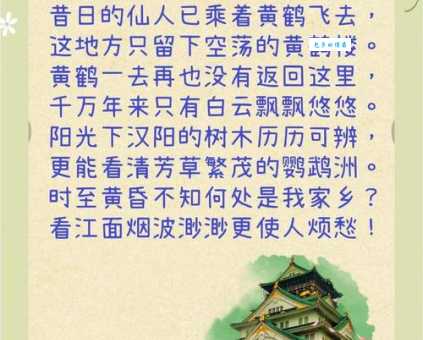 昔日的仙人已乘着黄鹤飞去，
这地方只留下空荡的黄鹤楼。
黄鹤一去再也没有返回这里，
千万年来只有白云飘飘悠悠。
阳光下汉阳的树木历历可辨，
更能看清芳草繁茂的鹦鹉洲。
时至黄昏不知何处是我家乡？
看江面烟波渺渺更使人烦愁！